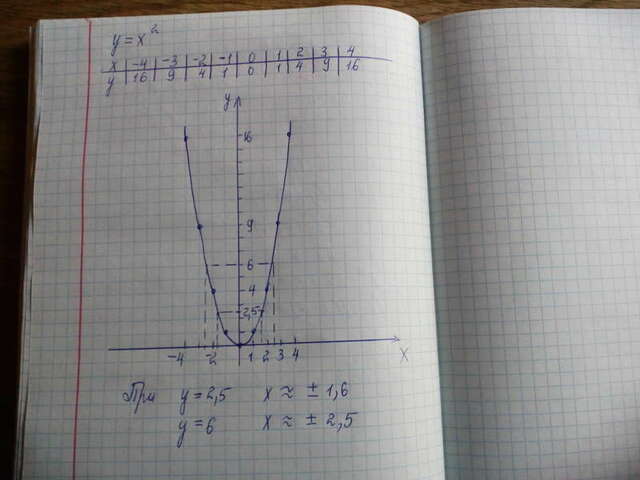 y = x²
x | -4 | -3 | -2 | -1 | 0 | 1 | 2 | 3 | 4
y | 16 | 9 | 4 | 1 | 0 | 1 | 4 | 9 | 16
y
16
9
6
4
2,5
-4 -2 1 2 3 4
x
При y = 2,5 x ≈ ± 1,6
y = 6 x ≈ ± 2,5